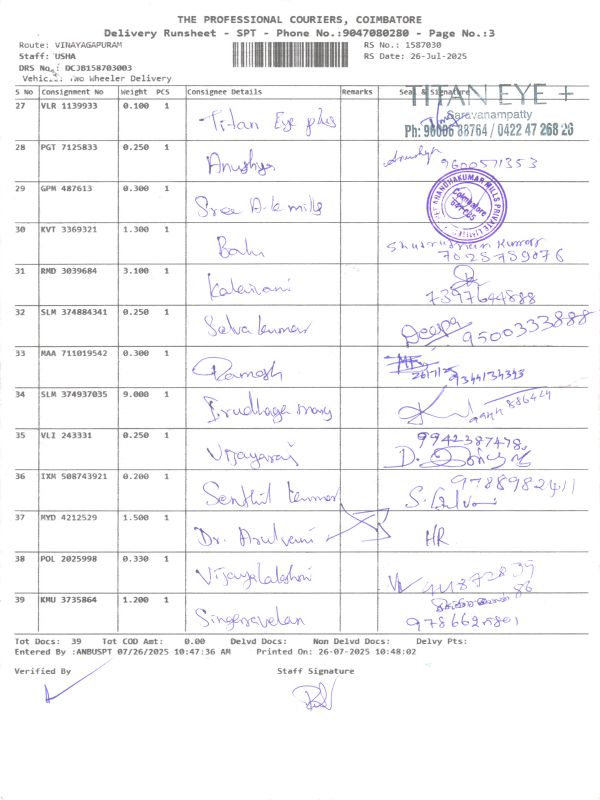 THE PROFESSIONAL COURIERS, COIMBATORE
Delivery Runsheet - SPT - Phone No.:9047080280 - Page No.:3
Route: VINAYAGAPURAM RS No.: 1587030
Staff: USHA RS Date: 26-Jul-2025
DRS No.: DCJB158703003
Vehicle: Two Wheeler Delivery
S No Consignment No Weight PCS Consignee Details Remarks Seal & Signature
TITAN EYE +
27 VLR 1139933 0.100 1 Titan Eye plus Saravanampatty
Ph: 96006 88764 / 0422 47 268 26
28 PGT 7125833 0.250 1 Anushya Anushya 9600571353
29 GPM 487613 0.300 1 Sree A.k mills Coimbatore
30 KVT 3369321 1.300 1 Babu
7025759076
31 RMD 3039684 3.100 1 Kalaivani
7397644888
32 SLM 374884341 0.250 1 Selva kumar Deepa 9500333888
33 MAA 711019542 0.300 1 Ramesh
9344134343
34 SLM 374937035 9.000 1 Irudhaya mary
35 VLI 243331 0.250 1 Vijayaraj 9942387478
36 IXM 508743921 0.200 1 Senthil kumar
37 MYD 4212529 1.500 1 Dr. Arulvani HR
38 POL 2025998 0.330 1 Vijayalakshmi
39 KMU 3735864 1.200 1 Singaravelan
Tot Docs: 39 Tot COD Amt: 0.00 Delvd Docs: Non Delvd Docs: Delvy Pts:
Entered By :ANBUSPT 07/26/2025 10:47:36 AM Printed On: 26-07-2025 10:48:02
Verified By Staff Signature